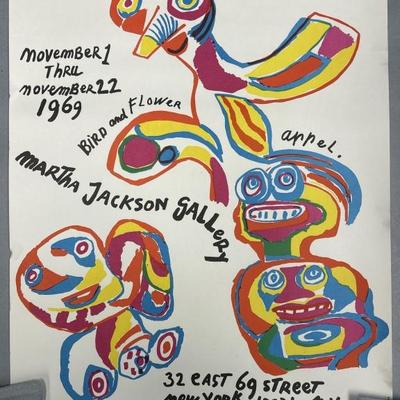 november 1
thru
november 22
1969
Bird and Flower
appel.
martha Jackson Gallery
32 east 69 street
new york